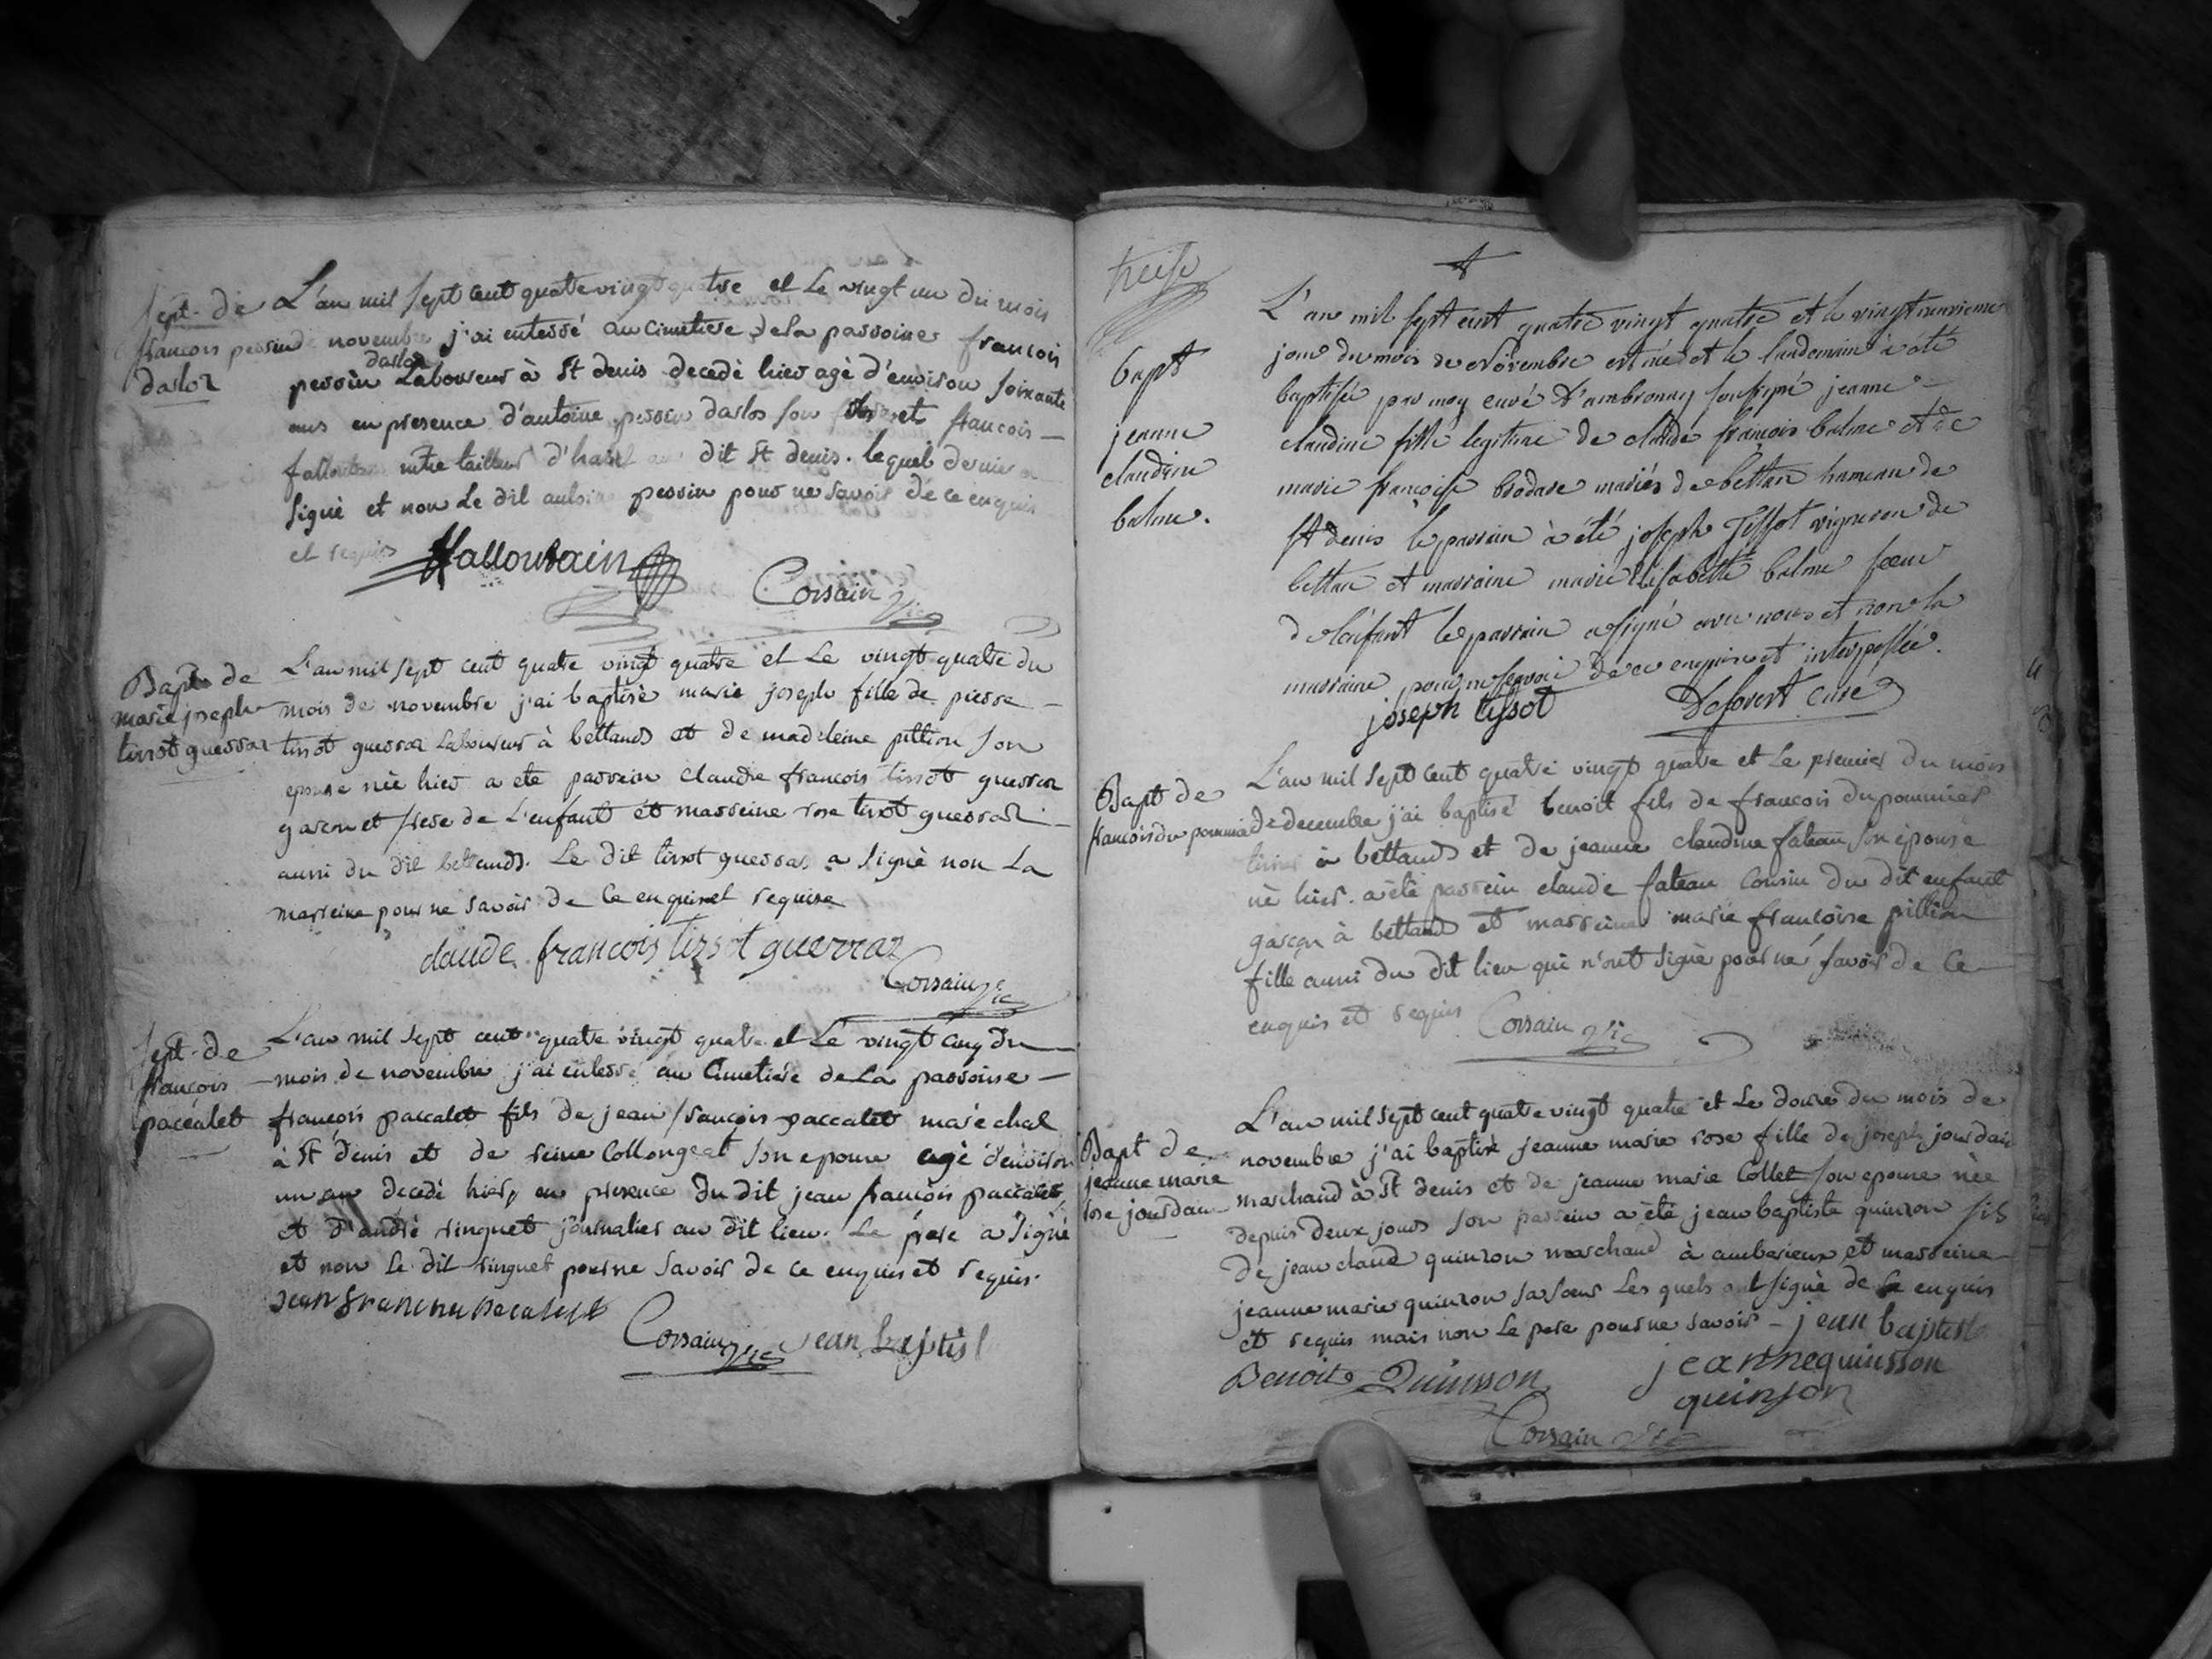 Sept. de
francois perrin
darloz
L'an mil sept cent quatre vingt quatre et Le vingt un du mois
de novembre j'ai enterré au Cimetiere de la parroisse francois
darloz
perrin Laboureur à St denis decedé hier agé d'environ soixante
ans en presence d'antoine perrin darloz son et francois
maitre tailleur d'habit au dit St denis. lequel dernier a
signé et non Le dit antoine perrin pour ne savoir de ce enquis
et requis
Corsain Vic
Bapt. de
marie joseph
tissot guerraz
L'an mil sept cent quatre vingt quatre et Le vingt quatre du
mois de novembre j'ai baptisé marie joseph fille de pierre
tissot guerraz Laboureur à bettands et de madeleine pillion son
epouse née hier a été parrein claude francois tissot guerraz
garcon et frere de L'enfant et marreine rose tissot guerraz
aussi du dit bettands. Le dit tissot guerraz a signé non La
marreine pour ne savoir de Ce enquise et requise
claude francois tissot guerraz
Corsain Vic
Sept. de
francois
paccalet
L'an mil sept cent quatre vingt quatre et Le vingt cinq du
mois de novembre j'ai enterré au Cimetiere de La parroisse
francois paccalet fils de jean francois paccalet marechal
à St denis et de reine Collongeat son epouse agé d'environ
un an decedé hier, en presence du dit jean francois paccalet
et d'andré ringuet journalier au dit lieu. Le pere a signé
et non Le dit ringuet pour ne savoir de ce enquis et requis.
Corsain Vic jean baptist
treise
bapt
jeanne
claudine
balme.
L'an mil sept cent quatre vingt quatre et le vingt neuvieme
jour du mois de Novembre est née et le landemain à été
baptisée par moy curé d'ambronay soussigné jeanne
claudine fille legitime de claude françois balme et de
marie françoise brodare mariés de bettan hameau de
St denis le parrain à été joseph Tissot vigneron de
bettan et marraine marie Elisabette balme sœur
de l'enfant le parrain a signé avec nous et non la
marraine pour ne sçavoir de ce enquise et interpellée.
joseph tissot
curé
Bapt de
francois du pommier
L'an mil sept cent quatre vingt quatre et Le premier du mois
de decembre j'ai baptisé benoit fils de francois du pommier
à bettands et de jeanne claudine fateau son épouse
né hier. a été parrein claude fateau Cousin du dit enfant
garçon à bettands et marreine marie francoise pillion
fille aussi du dit lieu qui n'ont signé pour ne savoir de Ce
enquis et requis Corsain Vic
Bapt de
jeanne marie
rose jourdain
L'an mil sept cent quatre vingt quatre et Le douze du mois de
novembre j'ai baptisé jeanne marie rose fille de joseph jourdain
marchand à St denis et de jeanne marie Collet son epouse née
depuis deux jours son parrein a été jean baptiste quinson fils
de jean claude quinson marchand à amberieux et marreine
jeanne marie quinson sa sœur Les quels ont signé de Ce enquis
et requis mais non Le pere pour ne savoir - jean baptiste
Benoite Quinson jeanne quinsson
quinson
Corsain Vic